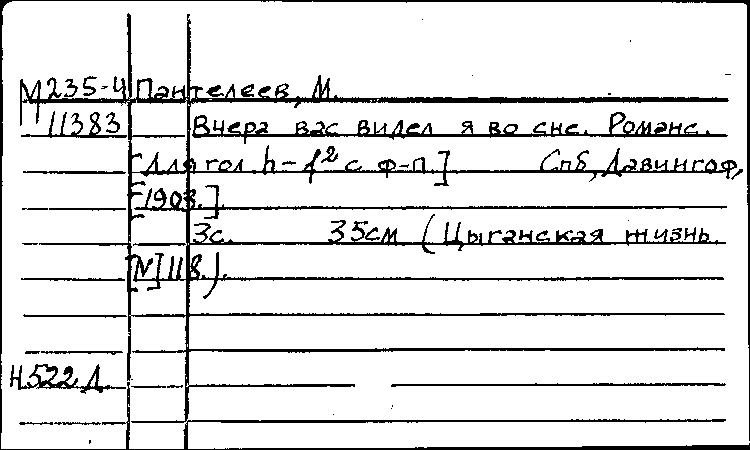 М235-4 Пантелеев, М.
11383 Вчера вас видел я во сне. Романс.
[Для гол. h-f² с ф-п.] Спб, Давингоф,
[1903.]
3с. 35см (Цыганская жизнь.
[N] 118.).
Н522Д